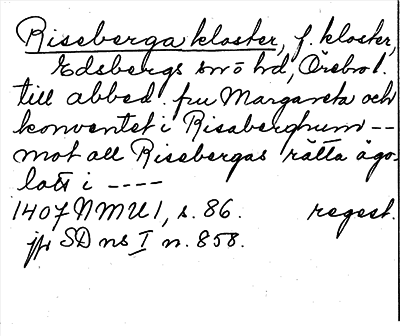 Riseberga kloster, f. kloster,
Edsbergs sn o hd, Örebro l.
till abbed. fru Margareta och
konventet i Risaberghum --
mot all Risebergas rätta ägo-
lott i ----
1407 NMU 1, s. 86. regest.
jfr SD ns I n. 858.